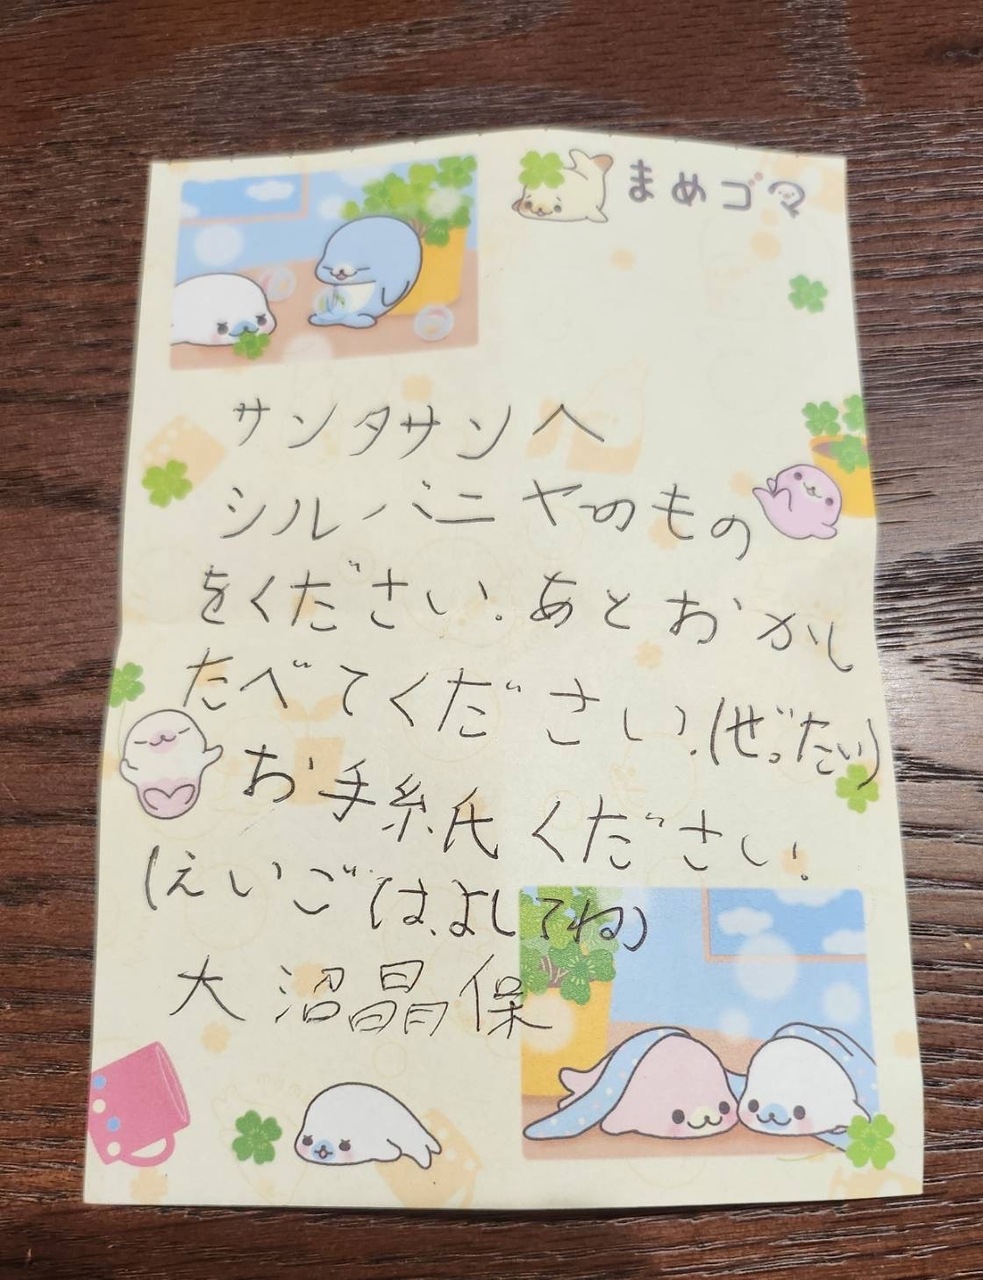 まめゴマ
サンタサンへ
シルバニヤのもの
をください.あとおかし
たべてください.(ぜったい)
お手紙ください.
(えいごは、よしてね)
大沼晶保